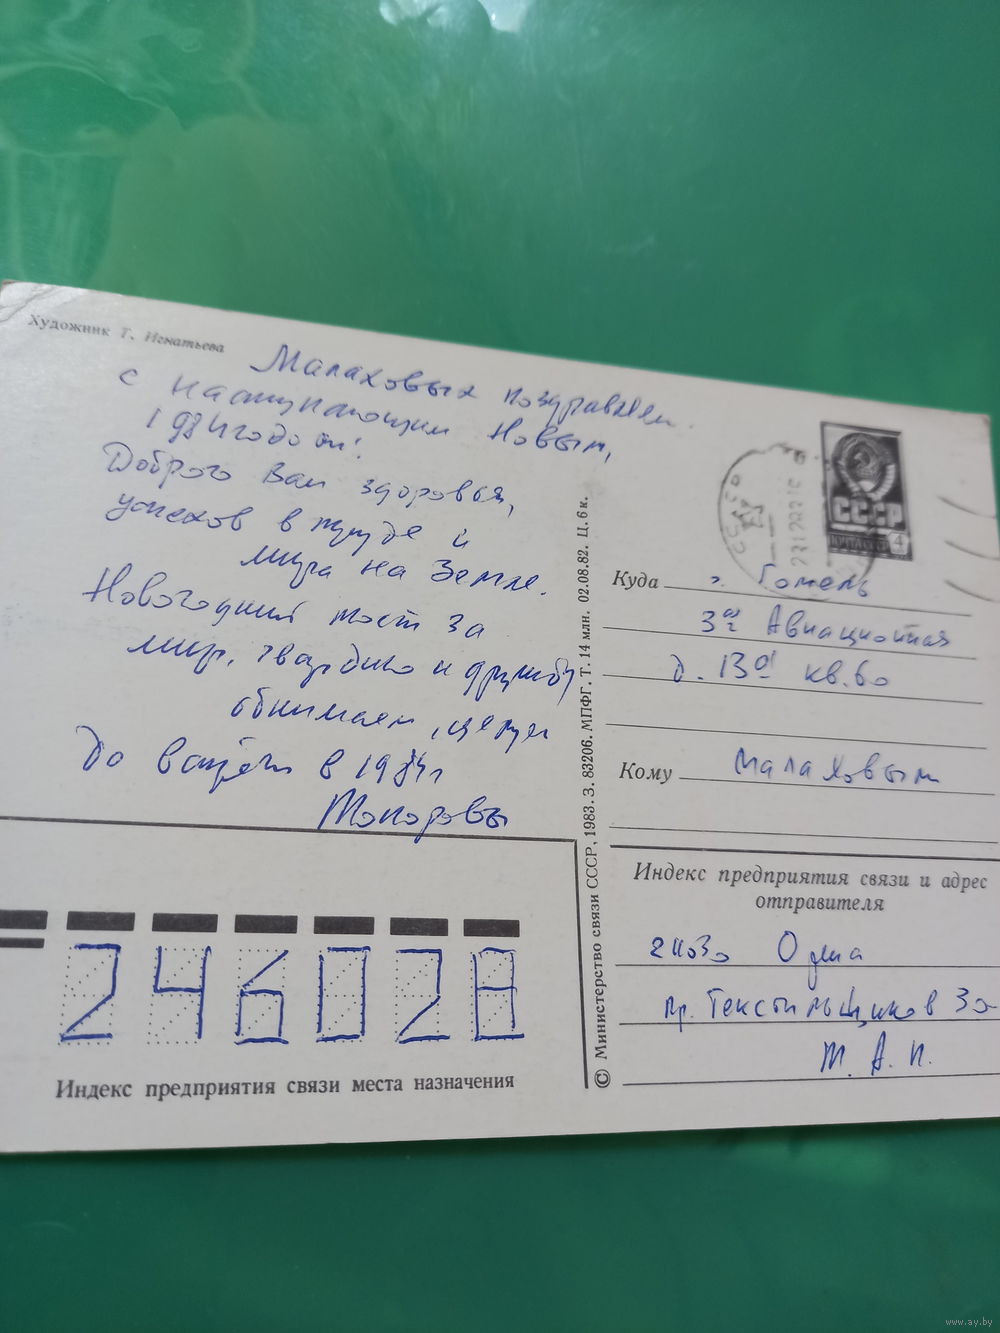 Художник Т. Игнатьева
Малаховых поздравляем
с наступающим Новым,
1984 годом!
Доброго Вам здоровья,
успехов в труде и
мира на Земле.
Новогодний тост за
мир, и дружбу
обнимаем, целуем
До встречи в 1984г
Токоровы
СССР
4
Куда г. Гомель
3ая Авиационная
д. 13а кв. 60
Кому Малаховым
Индекс предприятия связи и адрес
отправителя
пр. Текстильщиков
Т. А. П.
246028
Индекс предприятия связи места назначения
© Министерство связи СССР, 1983. З. 83206. МПФГ. Т. 14 млн. 02.08.82. Ц. 6 к.
www.ay.by